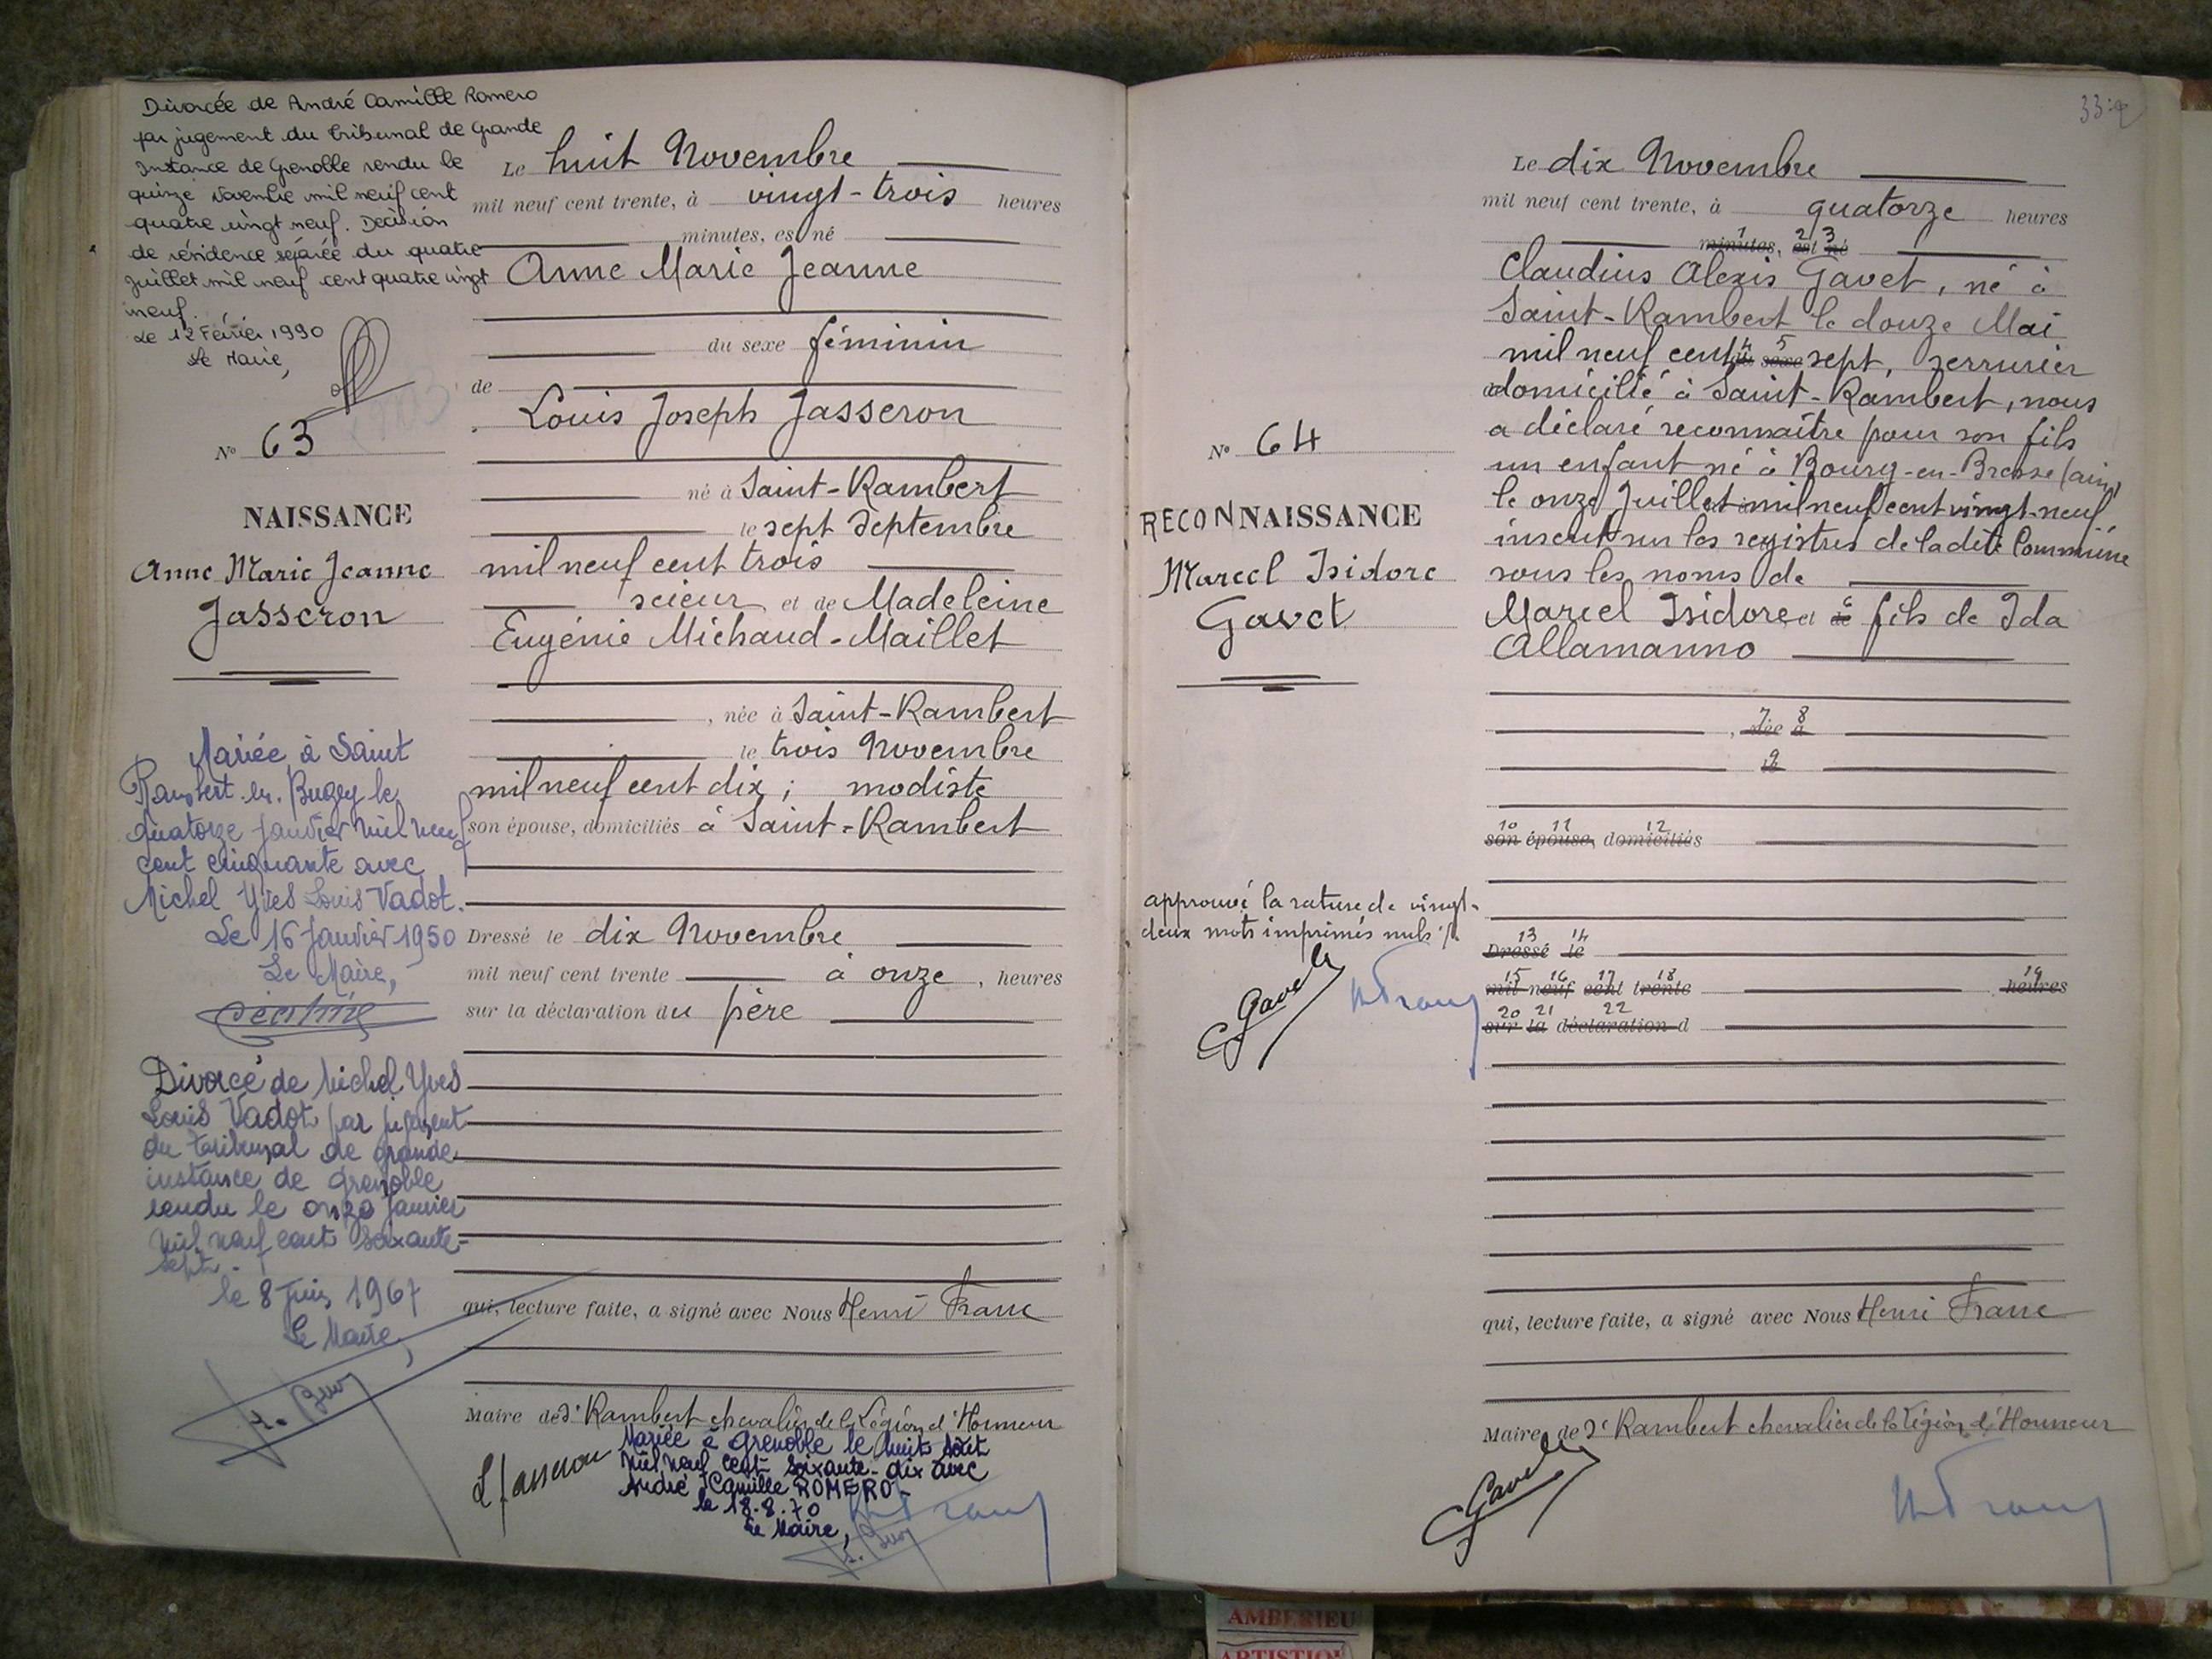 Divorcée de André Camille Romero
par jugement du tribunal de Grande
Instance de Grenoble rendu le
quinze Novembre mil neuf cent
quatre vingt neuf. Décision
de résidence séparée du quatre
Juillet mil neuf cent quatre vingt
neuf.
Le 12 Février 1990
Le Maire,
N° 63
NAISSANCE
Anne Marie Jeanne
Jasseron
Mariée à Saint
Rambert-en-Bugey le
quatorze janvier mil neuf
cent cinquante avec
Michel Yves Louis Vadot.
Le 16 Janvier 1950
Le Maire,
Divorcé de Michel Yves
Louis Vadot par jugement
du tribunal de grande
instance de Grenoble
rendu le onze Janvier
mil neuf cent soixante-
sept.
le 8 Juin 1967
Le Maire,
Le huit Novembre
mil neuf cent trente, à vingt-trois heures
minutes, est né
Anne Marie Jeanne
du sexe féminin
de
Louis Joseph Jasseron
né à Saint-Rambert
le sept Septembre
mil neuf cent trois
scieur et de Madeleine
Eugénie Michaud-Maillet
, née à Saint-Rambert
le trois Novembre
mil neuf cent dix ; modiste
son épouse, domiciliés à Saint-Rambert
Dressé le dix Novembre
mil neuf cent trente à onze , heures
sur la déclaration du père
qui, lecture faite, a signé avec Nous Henri Franc
Maire de St Rambert chevalier de la Légion d'Honneur
L Jasseron
Mariée à Grenoble le huit Août
mil neuf cent soixante-dix avec
André Camille ROMERO-
le 18.8.70
Le Maire,
HFranc
33
N° 64
RECONNAISSANCE
Marcel Isidore
Gavet
approuvé la rature de vingt-
deux mots imprimés nuls
Gavet
HFranc
Le dix Novembre
mil neuf cent trente, à quatorze heures
1 2 3
minutes, est né
Claudius Alexis Gavet, né à
Saint-Rambert le douze Mai
mil neuf cent 4 5 du sexe sept, serrurier
domicilié à Saint-Rambert, nous
a déclaré reconnaître pour son fils
un enfant né à Bourg-en-Bresse (Ain)
le onze Juillet mil neuf cent vingt-neuf
inscrit sur les registres de la dite Commune
sous les noms de
Marcel Isidore et 6 de fils de Ida
Allamanno
7 8
, née à
9
le
10 11 12
son épouse, domiciliés
13 14
Dressé le
15 16 17 18 19
mil neuf cent trente heures
20 21 22
sur la déclaration d
qui, lecture faite, a signé avec Nous Henri Franc
Maire de St Rambert chevalier de la Légion d'Honneur
Gavet
HFranc
AMBERIEU